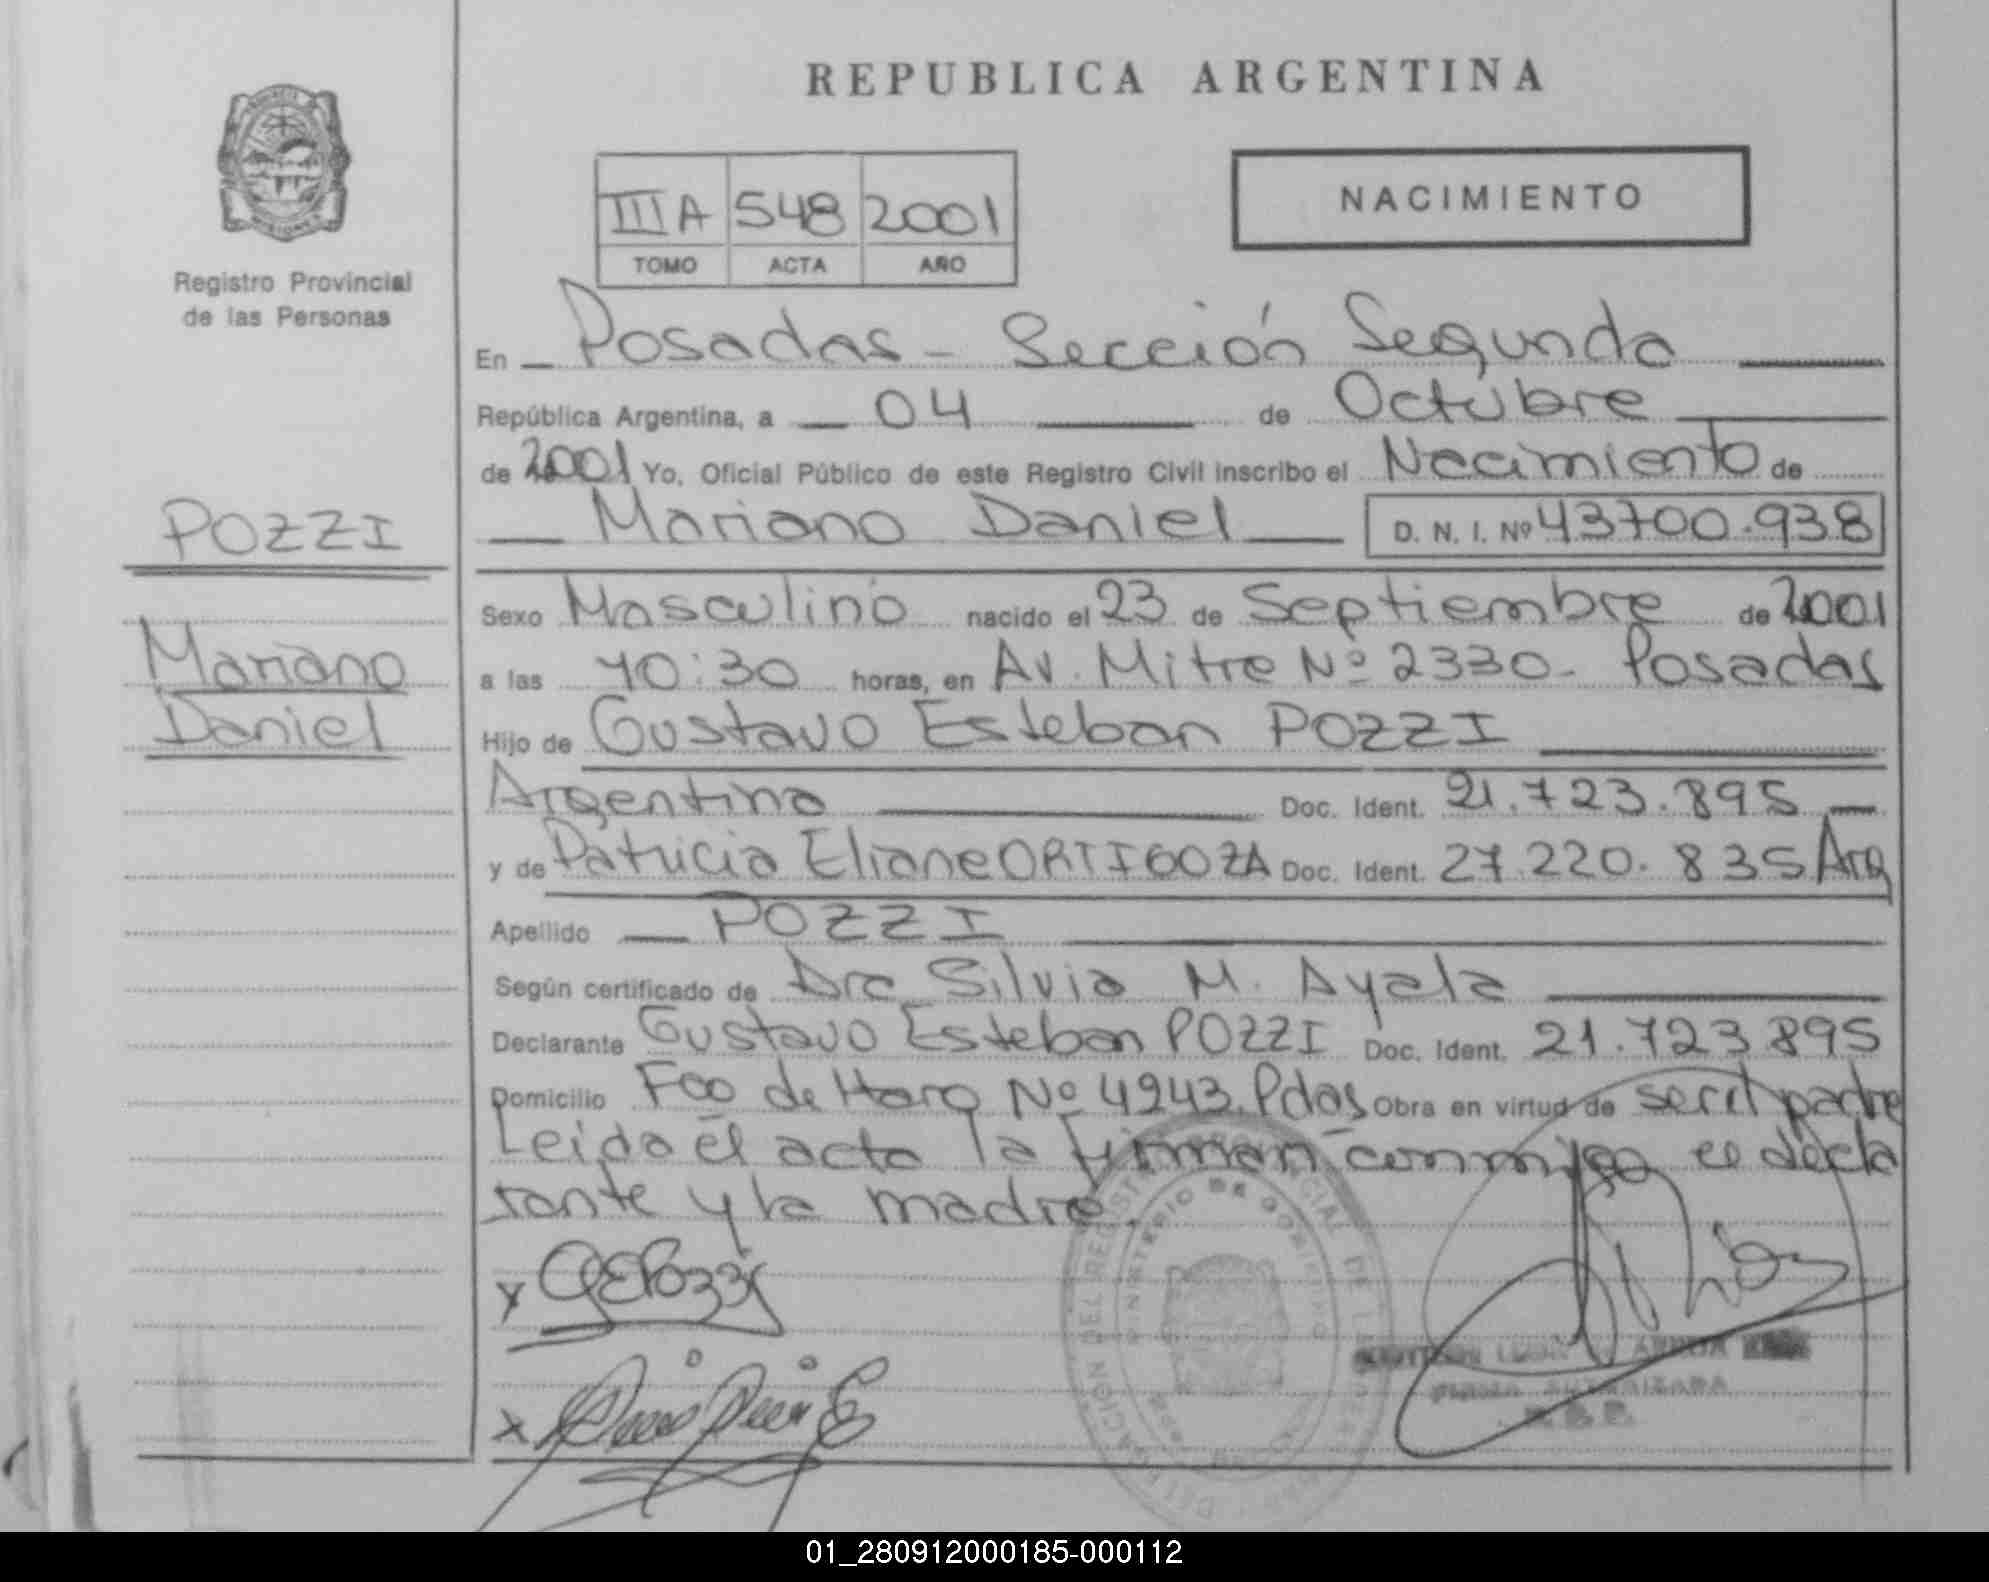 REPUBLICA ARGENTINA
NACIMIENTO
III A 548 2001
TOMO ACTA AÑO
Registro Provincial
de las Personas
POZZI
Mariano
Daniel
En Posadas - Sección Segunda
República Argentina, a 04 de Octubre
de 2001 Yo, Oficial Público de este Registro Civil inscribo el Nacimiento de
Mariano Daniel D. N. I. Nº 43700.938
Sexo Masculino nacido el 23 de Septiembre de 2001
a las 10:30 horas, en Av. Mitre Nº 2330- Posadas
Hijo de Gustavo Esteban POZZI
Argentino Doc. Ident. 21.723.895
y de Patricia Eliane ORTIGOZA Doc. Ident. 27.220.835 Arg
Apellido POZZI
Según certificado de Dra Silvia M. Ayala
Declarante Gustavo Esteban POZZI Doc. Ident. 21.723895
Domicilio Fco de Haro Nº 4943. Pdas Obra en virtud de ser el padre
Leida el acta la firman conmigo el decla
rante y la madre.
x GEPozzi
x
DELEGACION DEL REGISTRO PROVINCIAL DE LAS
MINISTERIO DE GOBIERNO
FIRMA AUTORIZADA
01_280912000185-000112